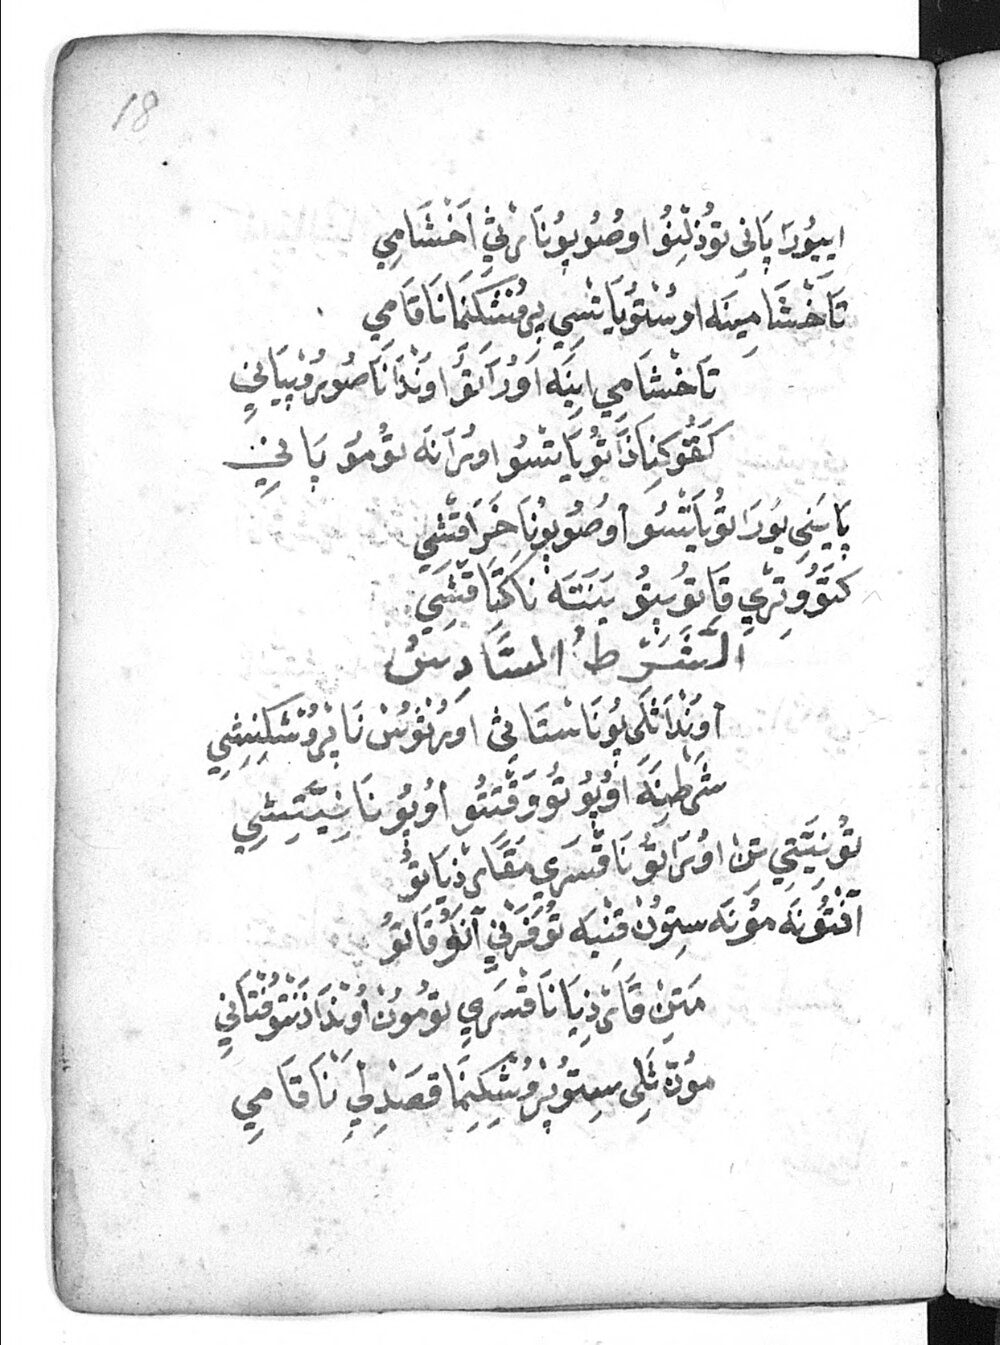 18
اِييُورَا پَانِى تُوذُلِنُو اوصُوپُونَا رْثِ اَخْشَامِي
تَاخْشَامِينَه اوسْتُويَاتْسِي پِرُسْكَنِمَا نَا قَامِي
تَاخْشَامِي اينَه اَوْرَاتُو اوَنْدَا نَا صُورُوپِيَانِي
كَقُوكِنَا ذَاتُويَاتْسُو اورَانَه تُومُو پَانِي
پَايَنِي يُورَا تُويَاتْسُو اُوصُوپُونَا خَرَاقْشِي
كَتَوُوتِرِي قَاتُوپُتُو يَنَتَه نَا كَتَاقْشِي
الشَّرْطُ السَّادِسُ
اُوَنْدَا ثَلَى پُونَا سْتَاثِى اوَرْثُوسْ نَا پْرُوسْكِنِسِي
شَرْطِنَه اُوپُوتُو وَقْتِتُو اُوپُونَا نِيَّتِسِي
تُونِيَّتِي تِنْ اوُرَاتُو نَا قْسَرِي مَقَارْذِيَاتُو
اَفْتُونَه مُونَه سِتُونْ قِنْبَه تُوفَرْضِي اَنَلُوقَاتُو
مَتِنْ قَارْذِيَا نَا قْسَرِي تُومُونْ اُوَنْدَا ذَنْتُوفْتَانِي
مُونْ ثَلِى سِتُوپْرُوسْكِنِمَا قَصَدِلِي نَنَا قَامِي